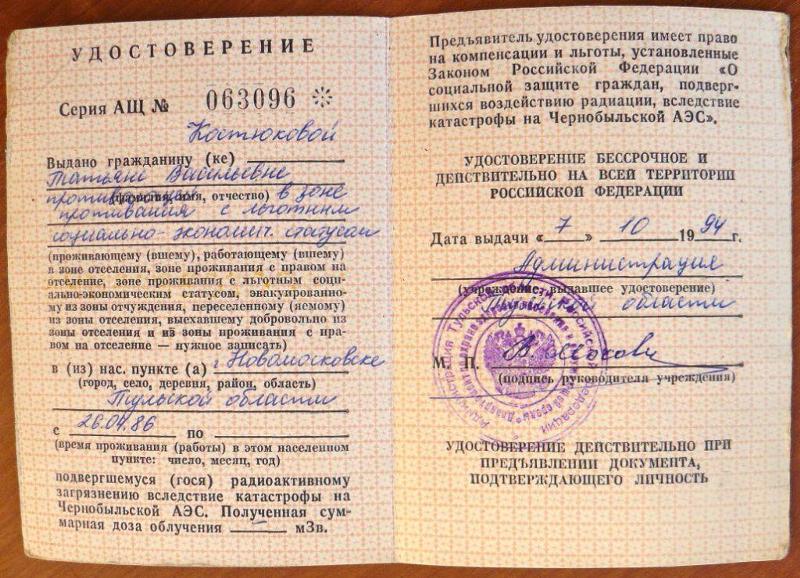 УДОСТОВЕРЕНИЕ
Серия АЩ № 063096 ※
Костюковой
Выдано гражданину (ке)
Татьяне Васильевне
(фамилия, имя, отчество) в зоне
проживания с льготным
социально-экономич. статусом
(проживающему (вшему), работающему (вшему)
в зоне отселения, зоне проживания с правом на
отселение, зоне проживания с льготным соци-
ально-экономическим статусом, эвакуированно-
му из зоны отчуждения, переселенному (яемому)
из зоны отселения, выехавшему добровольно из
зоны отселения и из зоны проживания с пра-
вом на отселение — нужное записать)
в (из) нас. пункте (а) г. Новомосковске
(город, село, деревня, район, область)
Тульской области
с 26.04.86 по
(время проживания (работы) в этом населенном
пункте: число, месяц, год)
подвергшемуся (гося) радиоактивному
загрязнению вследствие катастрофы на
Чернобыльской АЭС. Полученная сум-
марная доза облучения — мЗв.
Предъявитель удостоверения имеет право
на компенсации и льготы, установленные
Законом Российской Федерации «О
социальной защите граждан, подверг-
шихся воздействию радиации, вследствие
катастрофы на Чернобыльской АЭС».
УДОСТОВЕРЕНИЕ БЕССРОЧНОЕ И
ДЕЙСТВИТЕЛЬНО НА ВСЕЙ ТЕРРИТОРИИ
РОССИЙСКОЙ ФЕДЕРАЦИИ
Дата выдачи «7» 10 1994 г.
Администрация
(учреждение, выдавшее удостоверение)
Тульской области
М. П.
(подпись руководителя учреждения)
УДОСТОВЕРЕНИЕ ДЕЙСТВИТЕЛЬНО ПРИ
ПРЕДЪЯВЛЕНИИ ДОКУМЕНТА,
ПОДТВЕРЖДАЮЩЕГО ЛИЧНОСТЬ